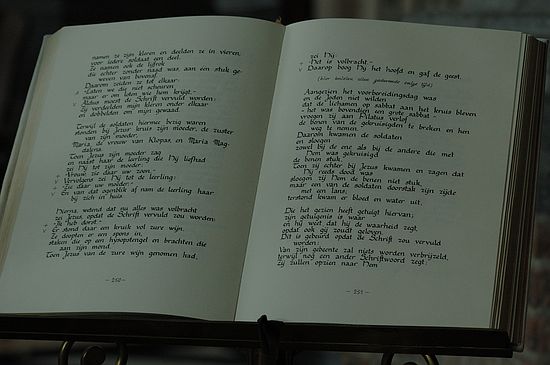 namen ze zijn kleren en deelden ze in vieren,
voor iedere soldaat een deel.
Ze namen ook de lijfrok
die echter zonder naad was, aan één stuk ge-
weven van bovenaf.
Daarom zeiden ze tot elkaar:
Laten we die niet scheuren
maar er om loten wie hem krijgt.-
Aldus moest de Schrift vervuld worden:
Zij verdeelden mijn kleren onder elkaar
en dobbelden om mijn gewaad.
Terwijl de soldaten hiermee bezig waren
stonden bij Jezus' kruis zijn moeder, de zuster
van zijn moeder,
Maria, de vrouw van Klopas, en Maria Mag-
dalena.
Toen Jezus zijn moeder zag
en naast haar de leerling die Hij liefhad
zei Hij tot zijn moeder:
+ -Vrouw, zie daar uw zoon.-
v Vervolgens zei Hij tot de leerling:
+ -Zie daar uw moeder.-
v En van dat ogenblik af nam de leerling haar
bij zich in huis.
Hierna, wetend dat nu alles was volbracht
zei Jezus, opdat de Schrift vervuld zou worden:
+ -Ik heb dorst.-
v Er stond daar een kruik vol zure wijn.
Ze doopten er een spons in,
staken die op een hysopstengel en brachten die
aan zijn mond.
Toen Jezus van de zure wijn genomen had,
- 250 -
zei Hij:
+ -Het is volbracht.-
v Daarop boog Hij het hoofd en gaf de geest.
(hier knielen allen gedurende enige tijd)
Aangezien het voorbereidingsdag was
en de Joden niet wilden
dat de lichamen op sabbat aan het kruis bleven
- het was bovendien een grote sabbat -
vroegen zij aan Pilatus verlof
de benen van de gekruisigden te breken en hen
weg te nemen.
Daarom kwamen de soldaten
en sloegen
zowel bij de ene als bij de andere die met
Hem was gekruisigd
de benen stuk.
Toen zij echter bij Jezus kwamen en zagen dat
Hij reeds dood was
sloegen zij Hem de benen niet stuk,
maar een van de soldaten doorstak zijn zijde
met een lans;
terstond kwam er bloed en water uit.
Die het gezien heeft getuigt hiervan;
zijn getuigenis is waar
en hij weet dat hij de waarheid zegt,
opdat ook gij zoudt geloven.
Dit is gebeurd opdat de Schrift zou vervuld
worden:
Van zijn gebeente zal niets worden verbrijzeld,
terwijl nog een ander Schriftwoord zegt:
Zij zullen opzien naar Hem
- 251 -